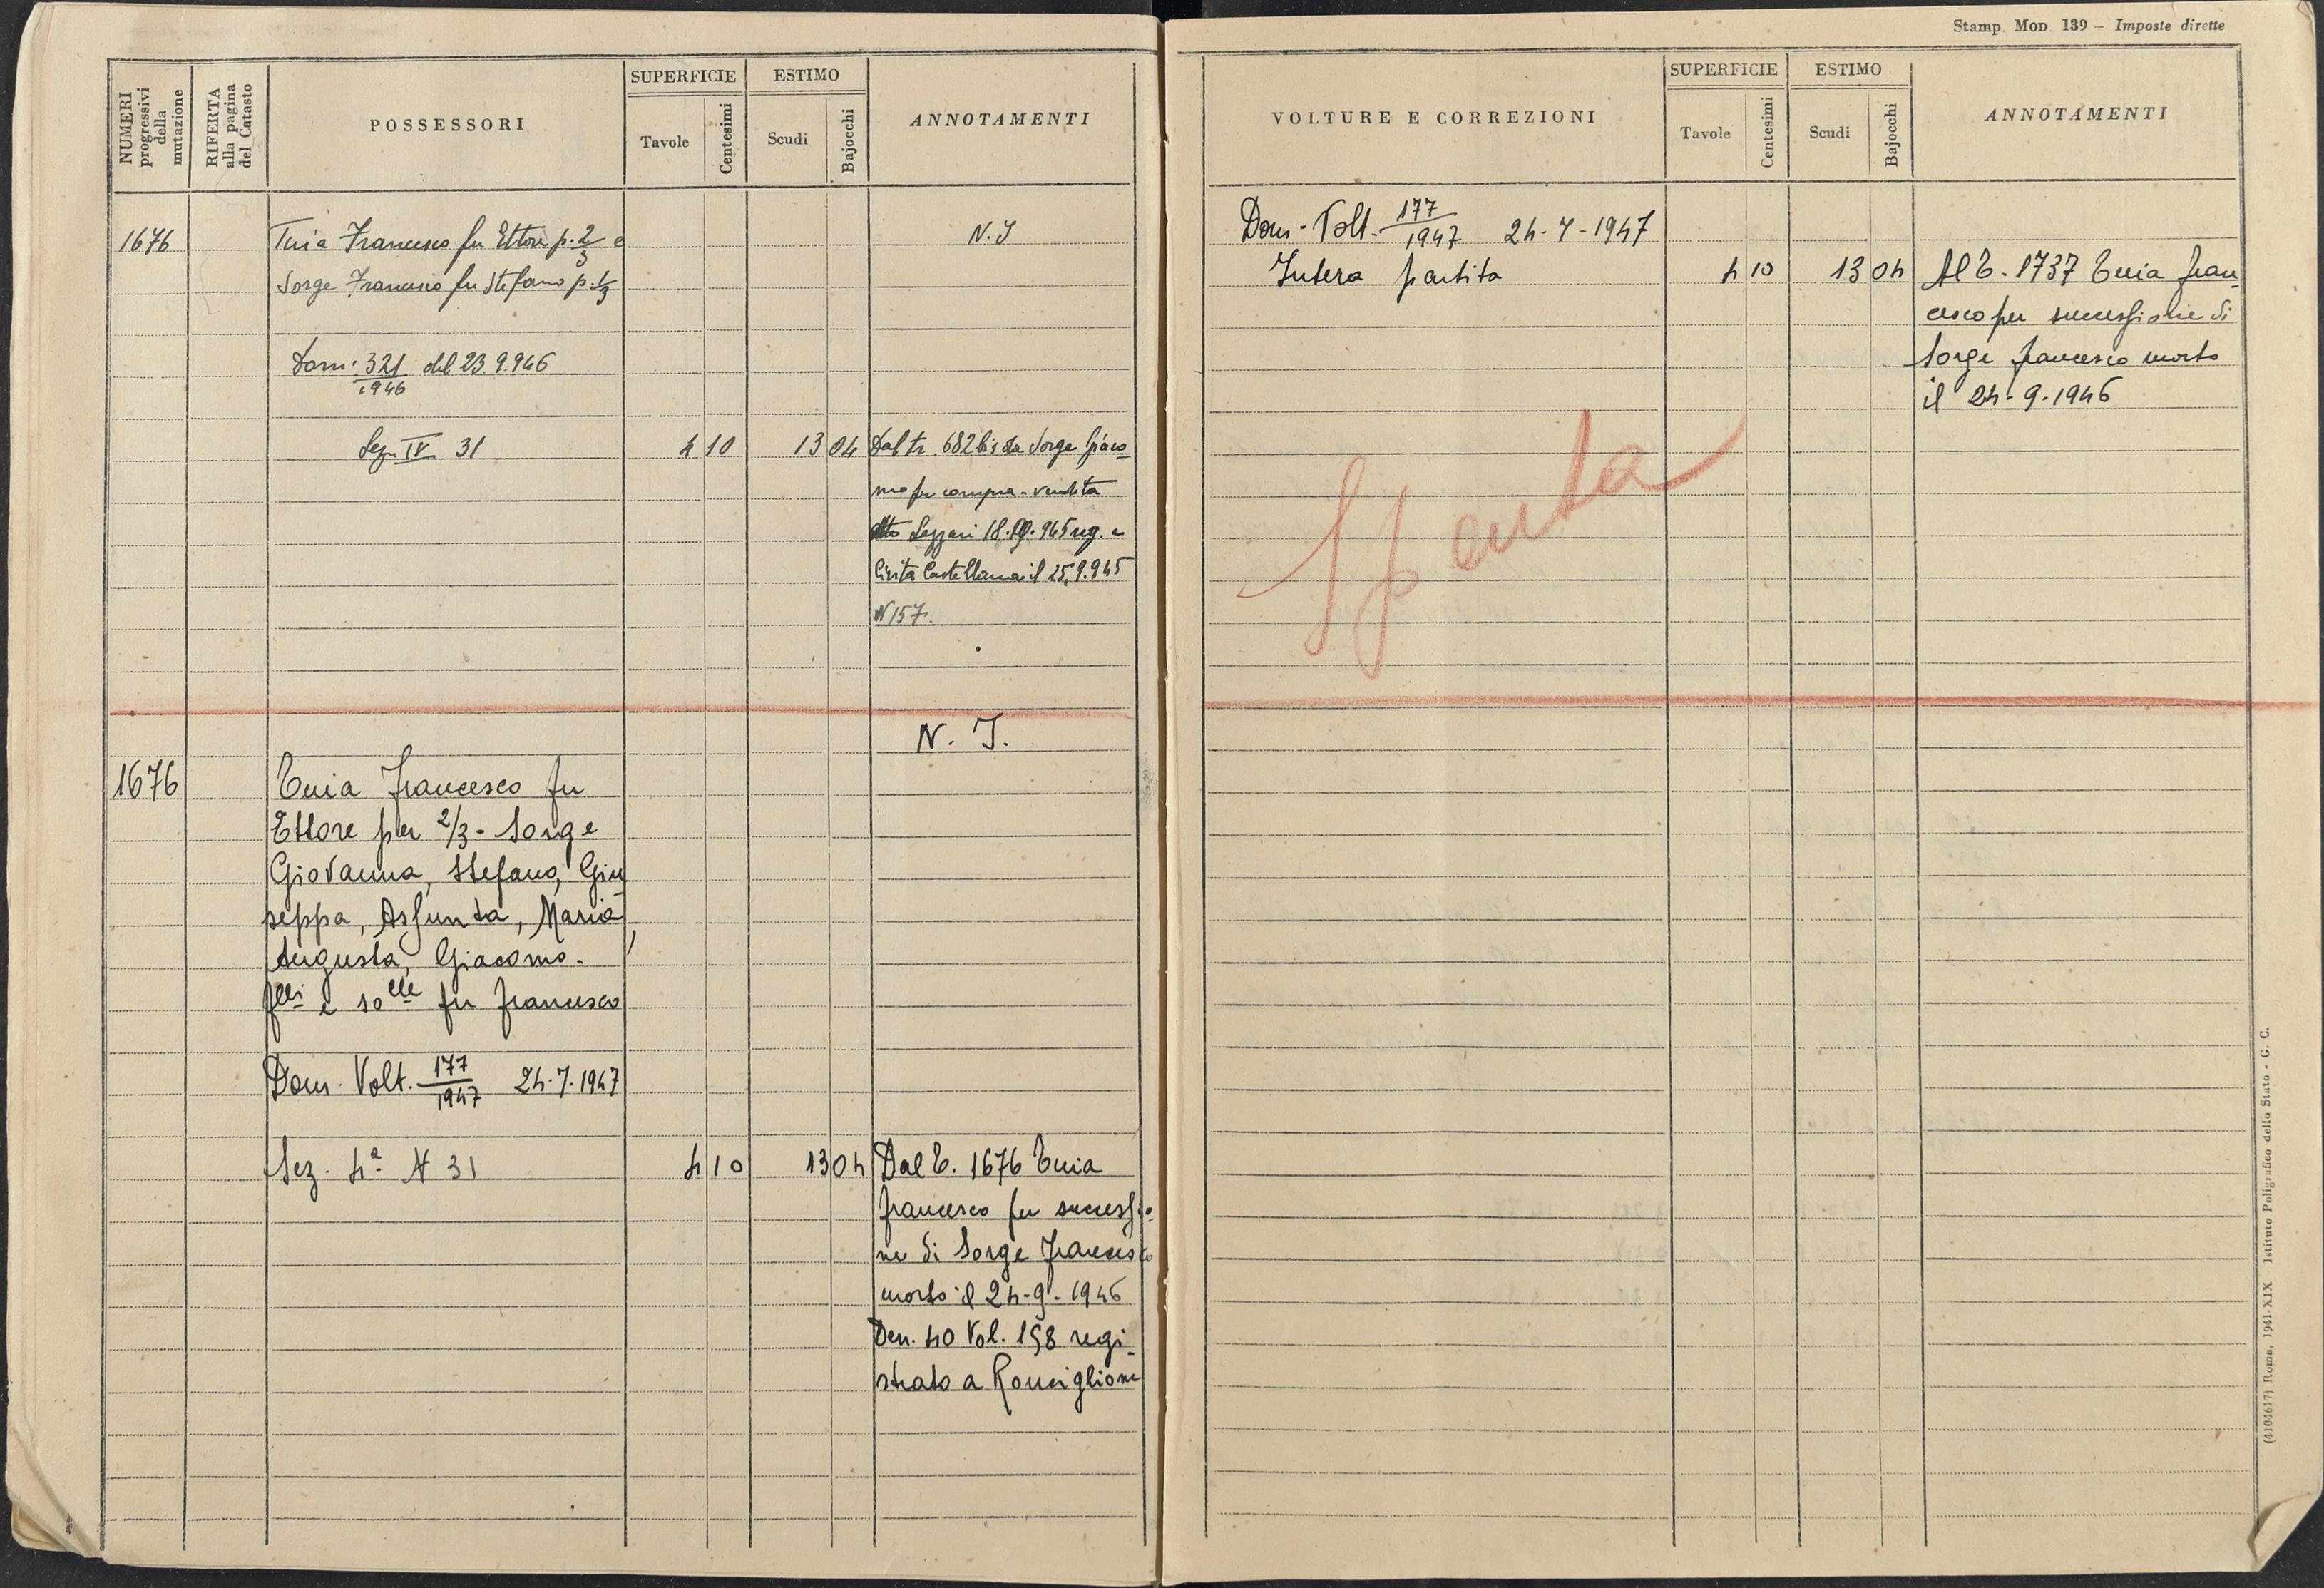 NUMERI progressivi della mutazione
RIFERTA alla pagina del Catasto
POSSESSORI
SUPERFICIE
Tavole
Centesimi
ESTIMO
Scudi
Bajocchi
ANNOTAMENTI
1676
N. I
Tuia Francesco fu Ettore p. 2/3 e
Sorge Francesco fu Stefano p. 1/3
Dom. 321/1946 del 23.9.946
Sez. IV 31
4 10
13 04
Dal tr. 682 bis da Sorge Giaco-
mo per compra-vendita
atto Lezzani 18.9.945 reg. a
Civita Castellana il 25.9.945
N 157.
N. I.
1676
Tuia Francesco fu
Ettore per 2/3 - Sorge
Giovanna, Stefano, Giu
seppa, Assunta, Maria,
Augusta, Giacomo.
flli e solle fu Francesco
Dom. Volt. 177/1947 24.7.1947
Sez. 4a N 31
4 10
13 04
Dal T. 1676 Tuia
Francesco per successio
ne di Sorge Francesco
morto il 24-9-1946
Den. 40 Vol. 158 regi-
strato a Ronciglione
Stamp. Mod. 139 - Imposte dirette
VOLTURE E CORREZIONI
SUPERFICIE
Tavole
Centesimi
ESTIMO
Scudi
Bajocchi
ANNOTAMENTI
Dom. Volt. 177/1947 24-7-1947
Intera partita
4 10
13 04
Al T. 1737 Tuia Fran-
cesco per successione di
Sorge Francesco morto
il 24-9-1946
Spenta
(4104617) Roma, 1941-XIX Istituto Poligrafico dello Stato - G. C.